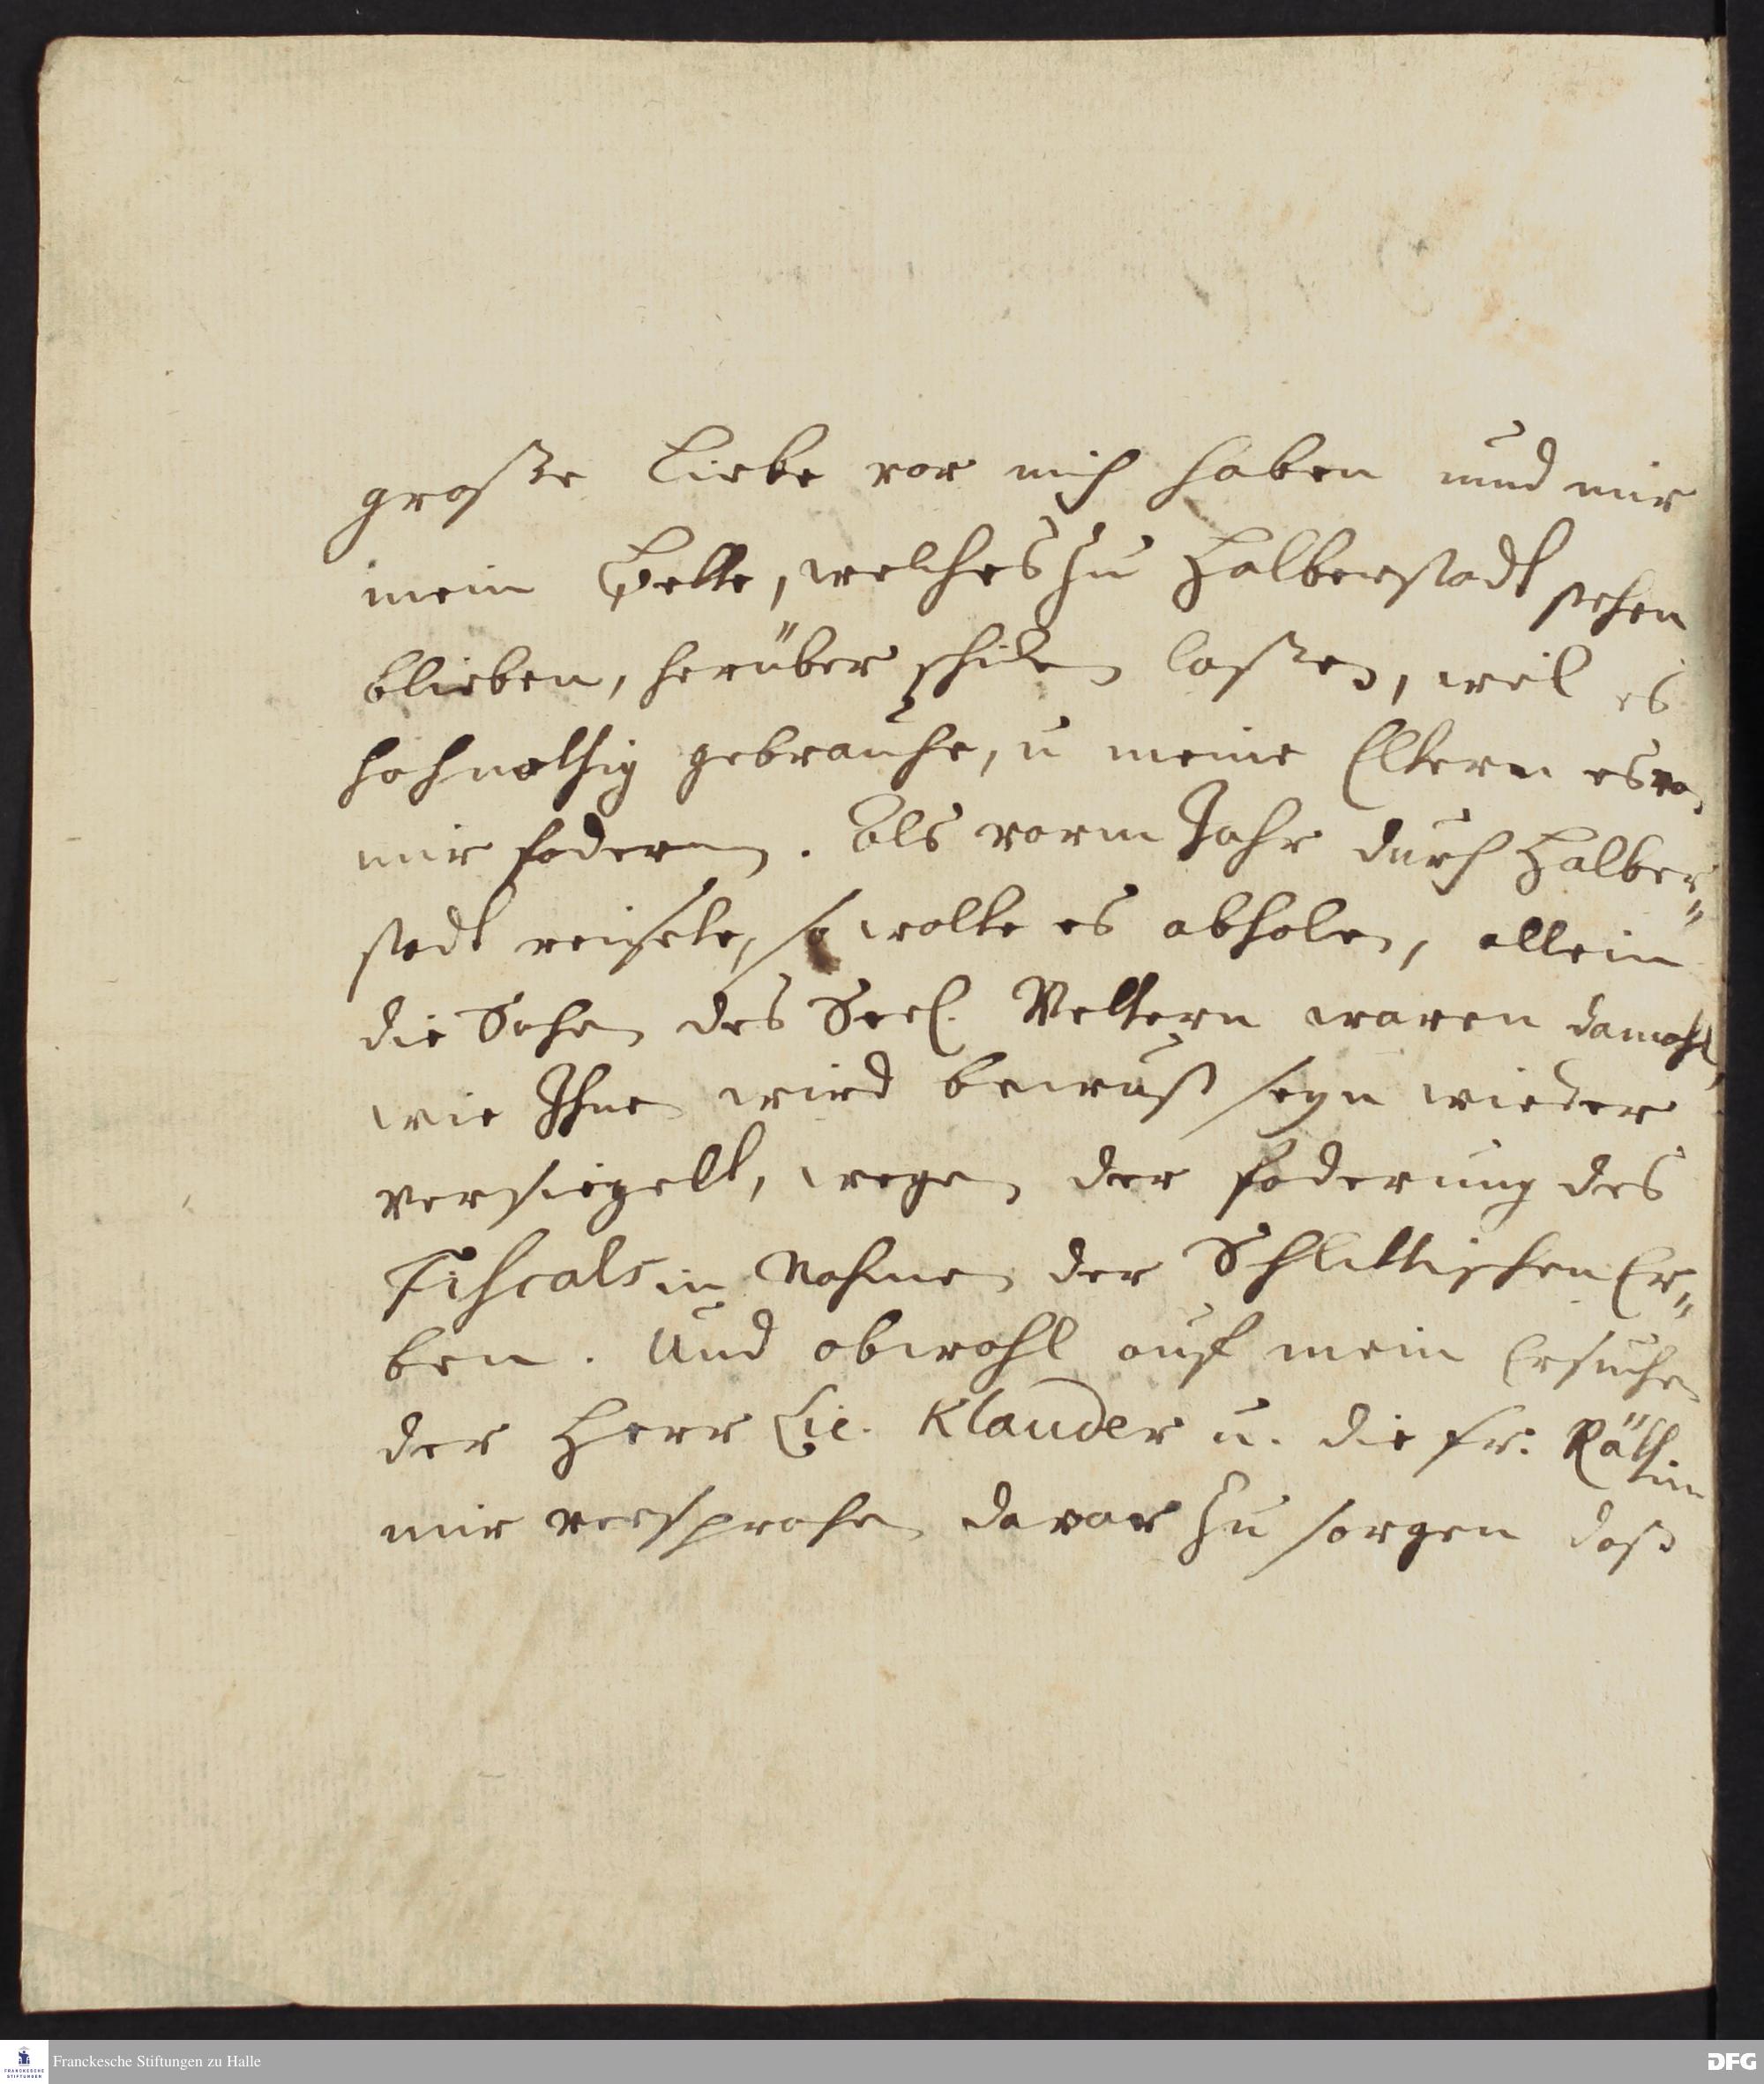 große Liebe vor mich haben und mir
mein Bette, welches zu Halberstadt stehen
blieben, herüber schiken laßen, weil es
hochnothig gebrauche, u meine Eltern es von
mir fodern. Als vorm Jahr durch Halber„
stadt reisete, so wolte es abholen, allein
die Sachen des Seel. Vettern waren damahl,
wie Ihnen wird bewust seyn wieder
versiegelt, wegen der foderung des
Fiscals in Nahmen der Schlittischen Er„
ben. Und obwohl auf mein Ersuchen
der Herr Lic. Klauder u. die fr: Räthin
mir versprochen davor zu sorgen daß
Franckesche Stiftungen zu Halle
FRANCKESCHE
STIFTUNGEN
DFG